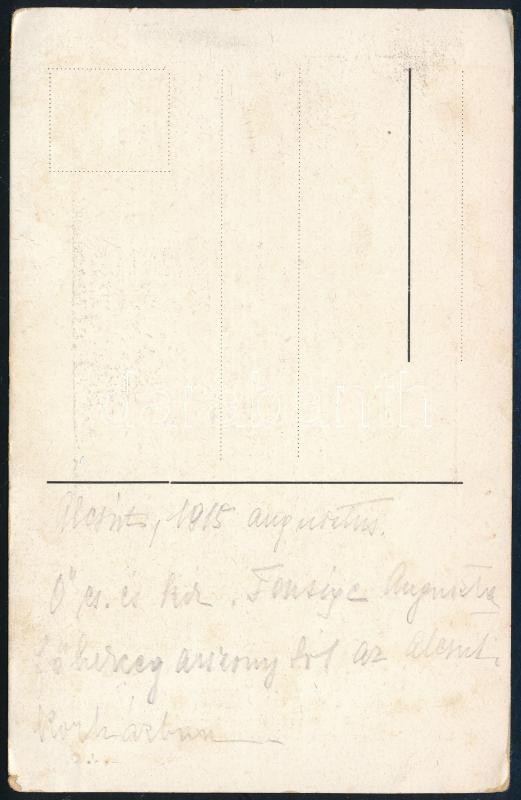 Alcsút, 1915 augusztus.
Ő cs. és kir. Fensége Auguszta
főherceg asszony től az alcsuti
kórházban
darabanth